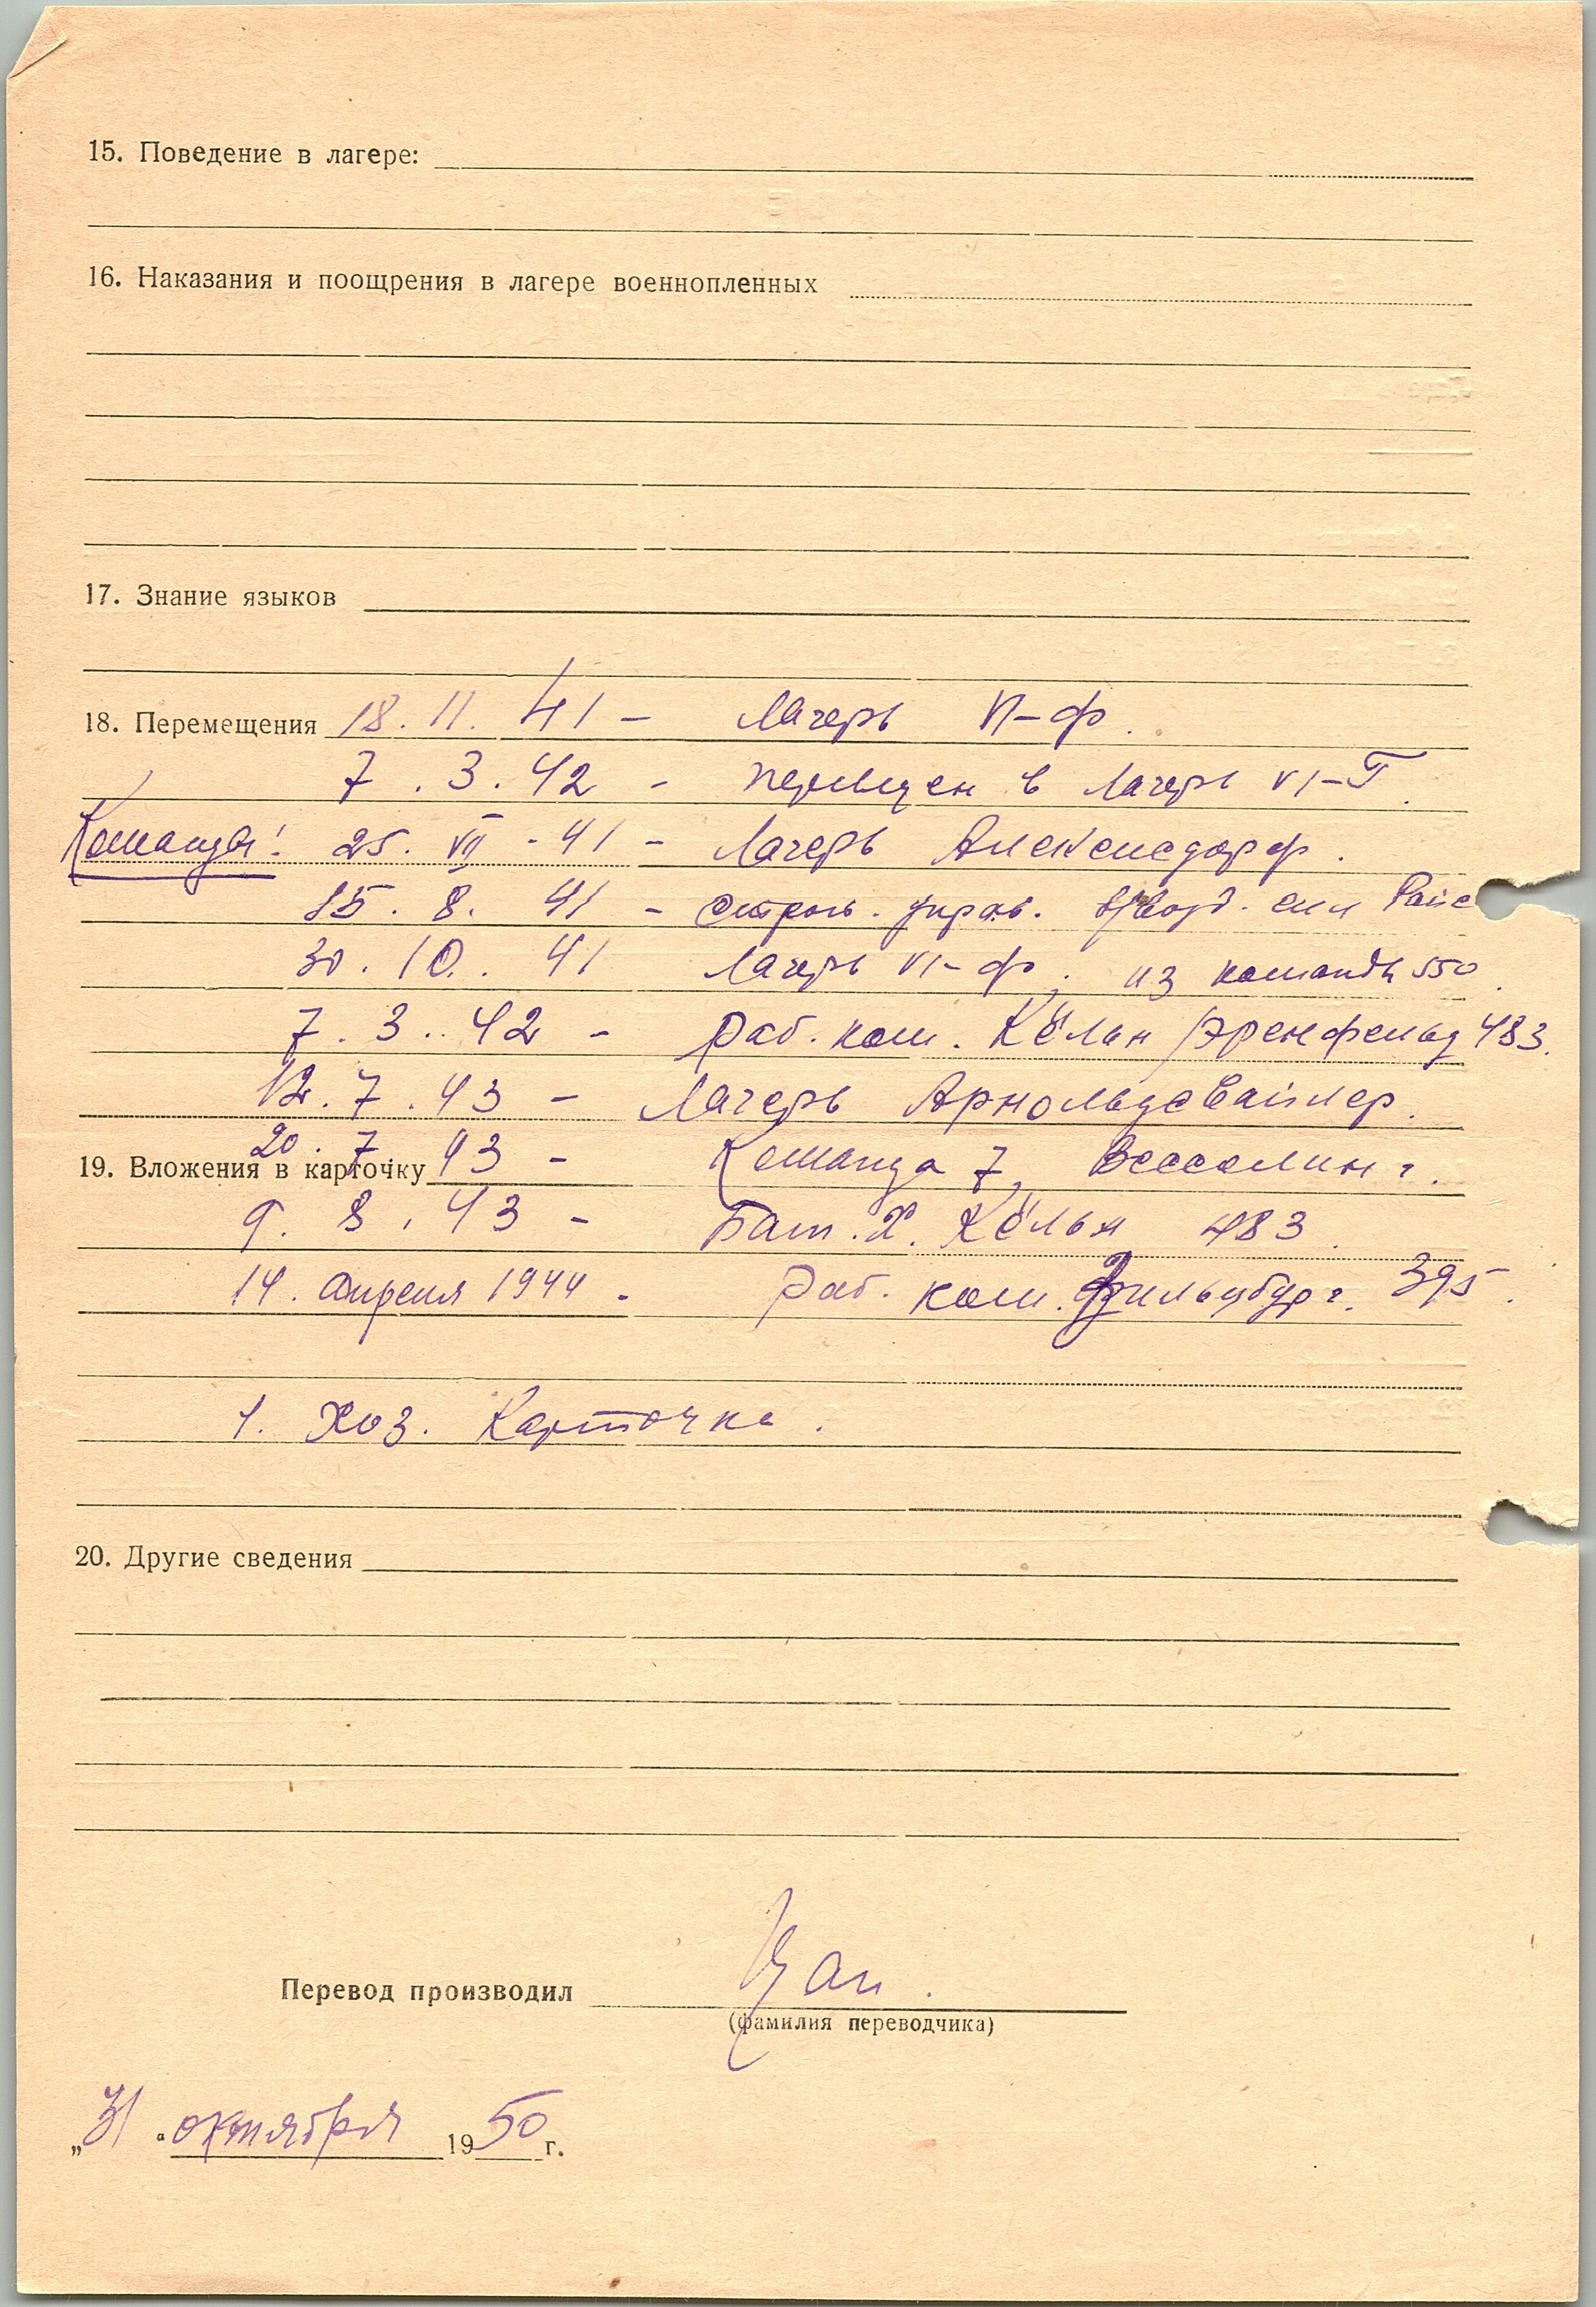 15. Поведение в лагере:
16. Наказания и поощрения в лагере военнопленных
17. Знание языков
18. Перемещения 18. 11. 41 - Лагерь VI-Ф.
7. 3. 42 - перемещен в лагерь VI-Г.
Команды: 25. VII - 41 - Лагерь Алексисдорф.
15. 8. 41 - строит. управ. возд. сил
30. 10. 41 Лагерь VI-Ф. из команды 550.
7. 3. 42 - Раб. ком. Кёльн/Эренфельд 483.
12. 7. 43 - Лагерь Арнольдсвайлер.
20. 7. 43 - Команда 7, Весселинг.
19. Вложения в карточку
9. 8. 43 - Бат. X. Кёльн 483.
14. апреля 1944 - Раб. ком. 395.
1. Хоз. Карточка.
20. Другие сведения
Перевод производил
(фамилия переводчика)
„31“ октября 1950 г.